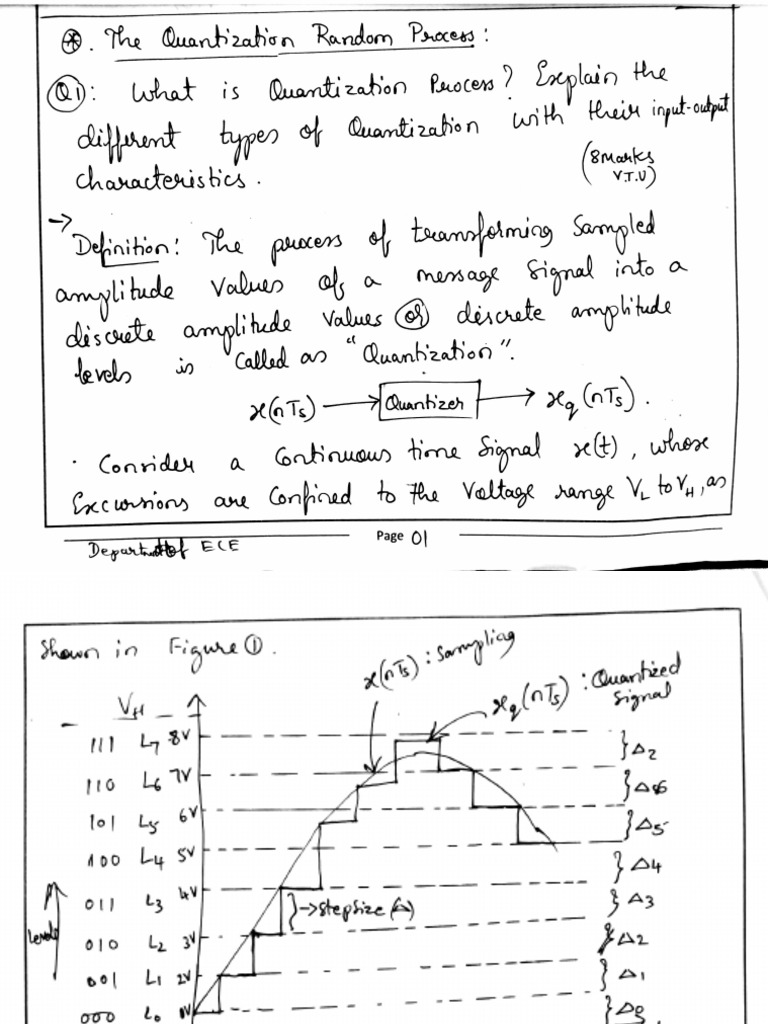 ⊛. The Quantization Random Process:
Q1: What is Quantization Process? Explain the
different types of Quantization with their input-output
characteristics.
(8 Marks
V.T.U)
→ Definition: The process of transforming Sampled
amplitude values of a message signal into a
discrete amplitude values or discrete amplitude
levels is called as "Quantization".
x(nTs) → Quantizer → xq(nTs).
· Consider a Continuous time Signal x(t), whose
Excursions are Confined to the Voltage range VL to VH, as
Page 01
Department of ECE
Shown in Figure 1.
x(nTs): Sampling
xq(nTs): Quantized
Signal
VH
111 L7 8V }Δ2
110 L6 7V }Δ6
101 L5 6V }Δ5
100 L4 5V }Δ4
011 L3 4V }Δ3
}→ Stepsize (Δ)
Levels
010 L2 3V }Δ2
001 L1 2V }Δ1
000 L0 }Δ0